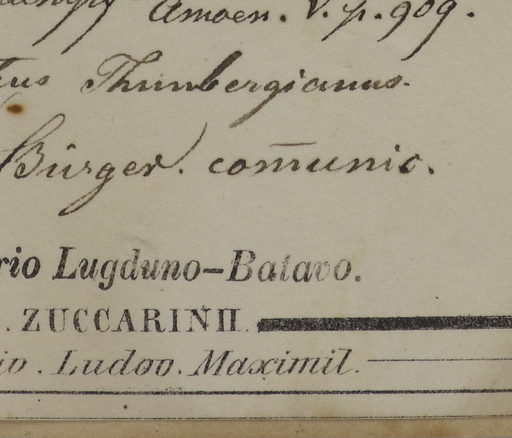 Amoen. V. p. 909.
Thunbergianus.
Bürger. com̄unic.
rio Lugduno-Batavo.
. ZUCCARINII.
io. Ludov. Maximil.